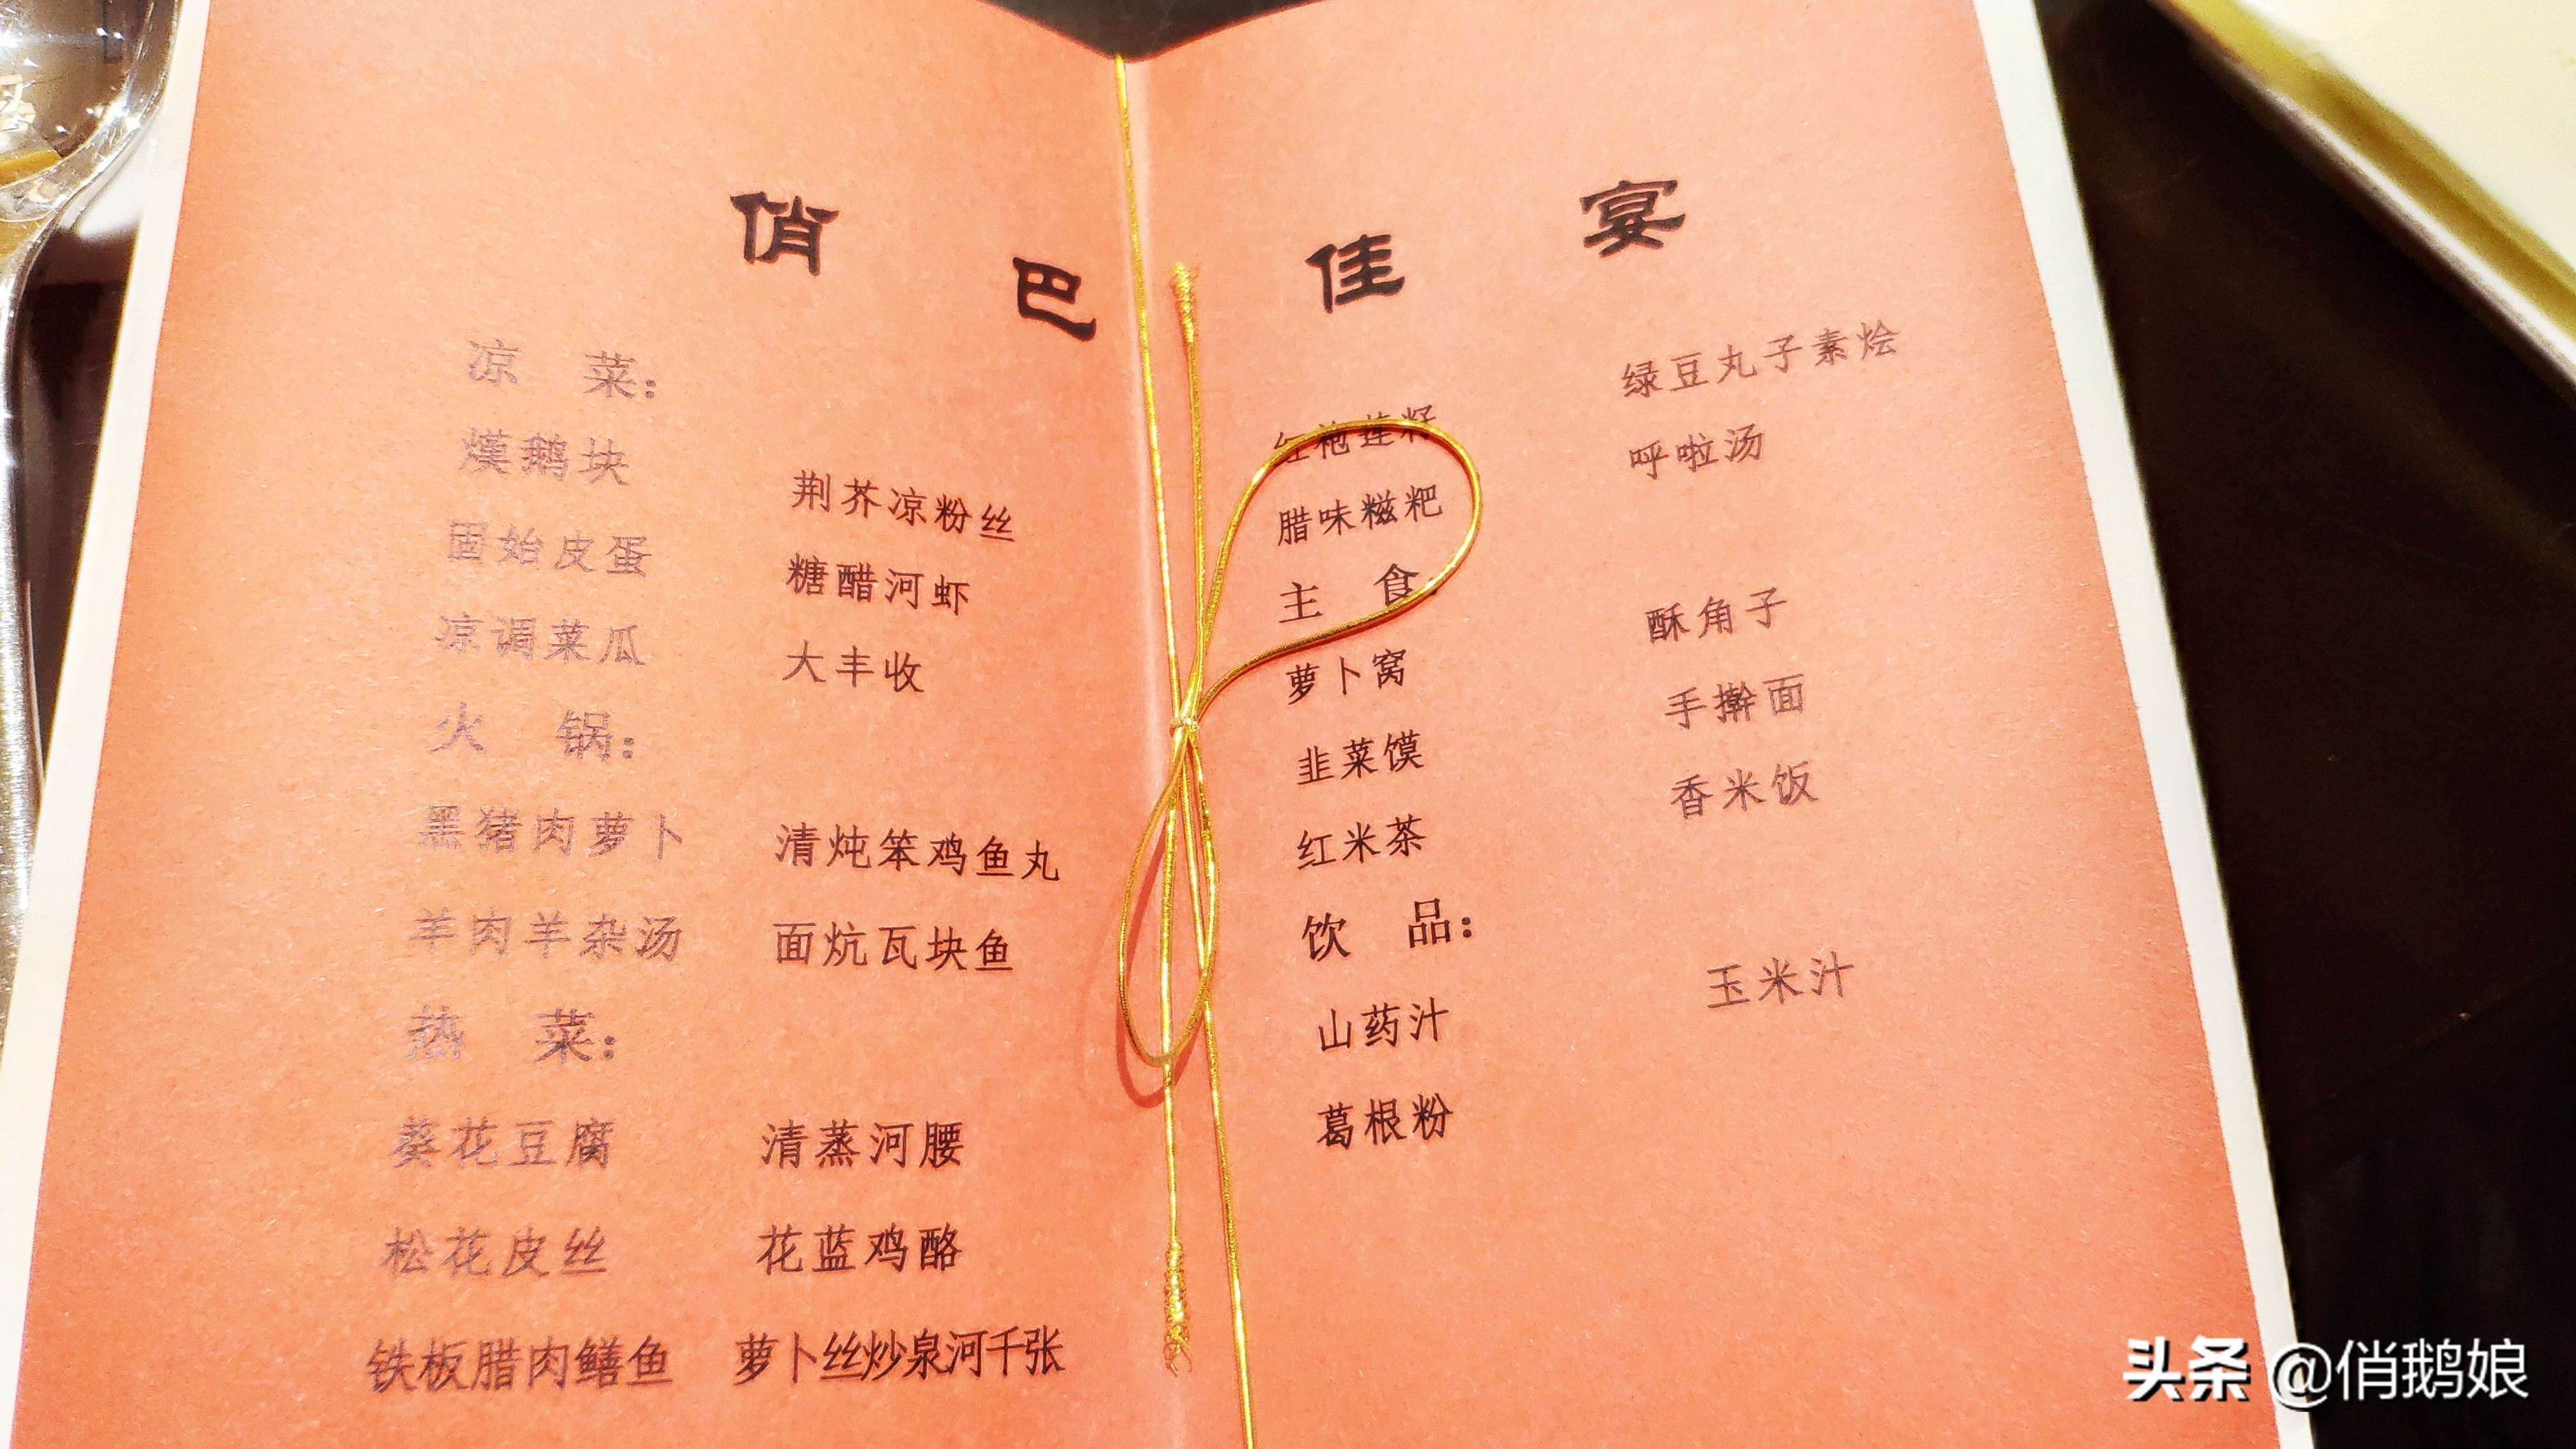 俏巴佳宴
凉 菜：
熯鹅块 荆芥凉粉丝
固始皮蛋 糖醋河虾
凉调菜瓜 大丰收
火 锅：
黑猪肉萝卜 清炖笨鸡鱼丸
羊肉羊杂汤 面炕瓦块鱼
热 菜：
葵花豆腐 清蒸河腰
松花皮丝 花蓝鸡酪
铁板腊肉鳝鱼 萝卜丝炒泉河千张
红袍莲籽 绿豆丸子素烩
腊味糍粑 呼啦汤
主 食：
萝卜窝 酥角子
韭菜馍 手擀面
红米茶 香米饭
饮 品：
山药汁 玉米汁
葛根粉
头条 @俏鹅娘